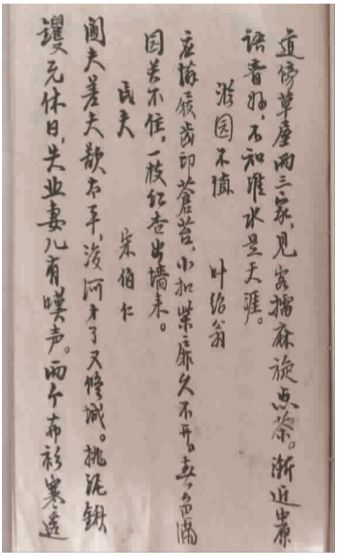 道傍草屋两三家，见客擂麻旋点茶。渐近中原
语音好，不知淮水是天涯。
游园不值　叶绍翁
应怜屐齿印苍苔，小扣柴扉久不开。春色满
园关不住，一枝红杏出墙来。
民夫　宋伯仁
阃夫差夫歇不平，浚河才了又修城。挑泥锹
钁无休日，失业妻儿有叹声。两个布衫寒透